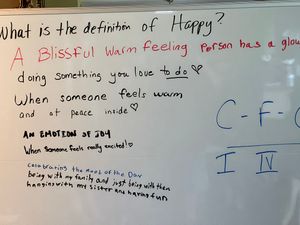 What is the definition of Happy?
A Blissful warm feeling Person has a glow
doing something you love to do ♡
When someone feels warm
and at peace inside ♡
AN EMOTION OF JOY
When someone feels really excited! ♡
Celebrating the of the Day
being with my family and just being with then
hanging with my sister and having fun
C - F - G
I IV